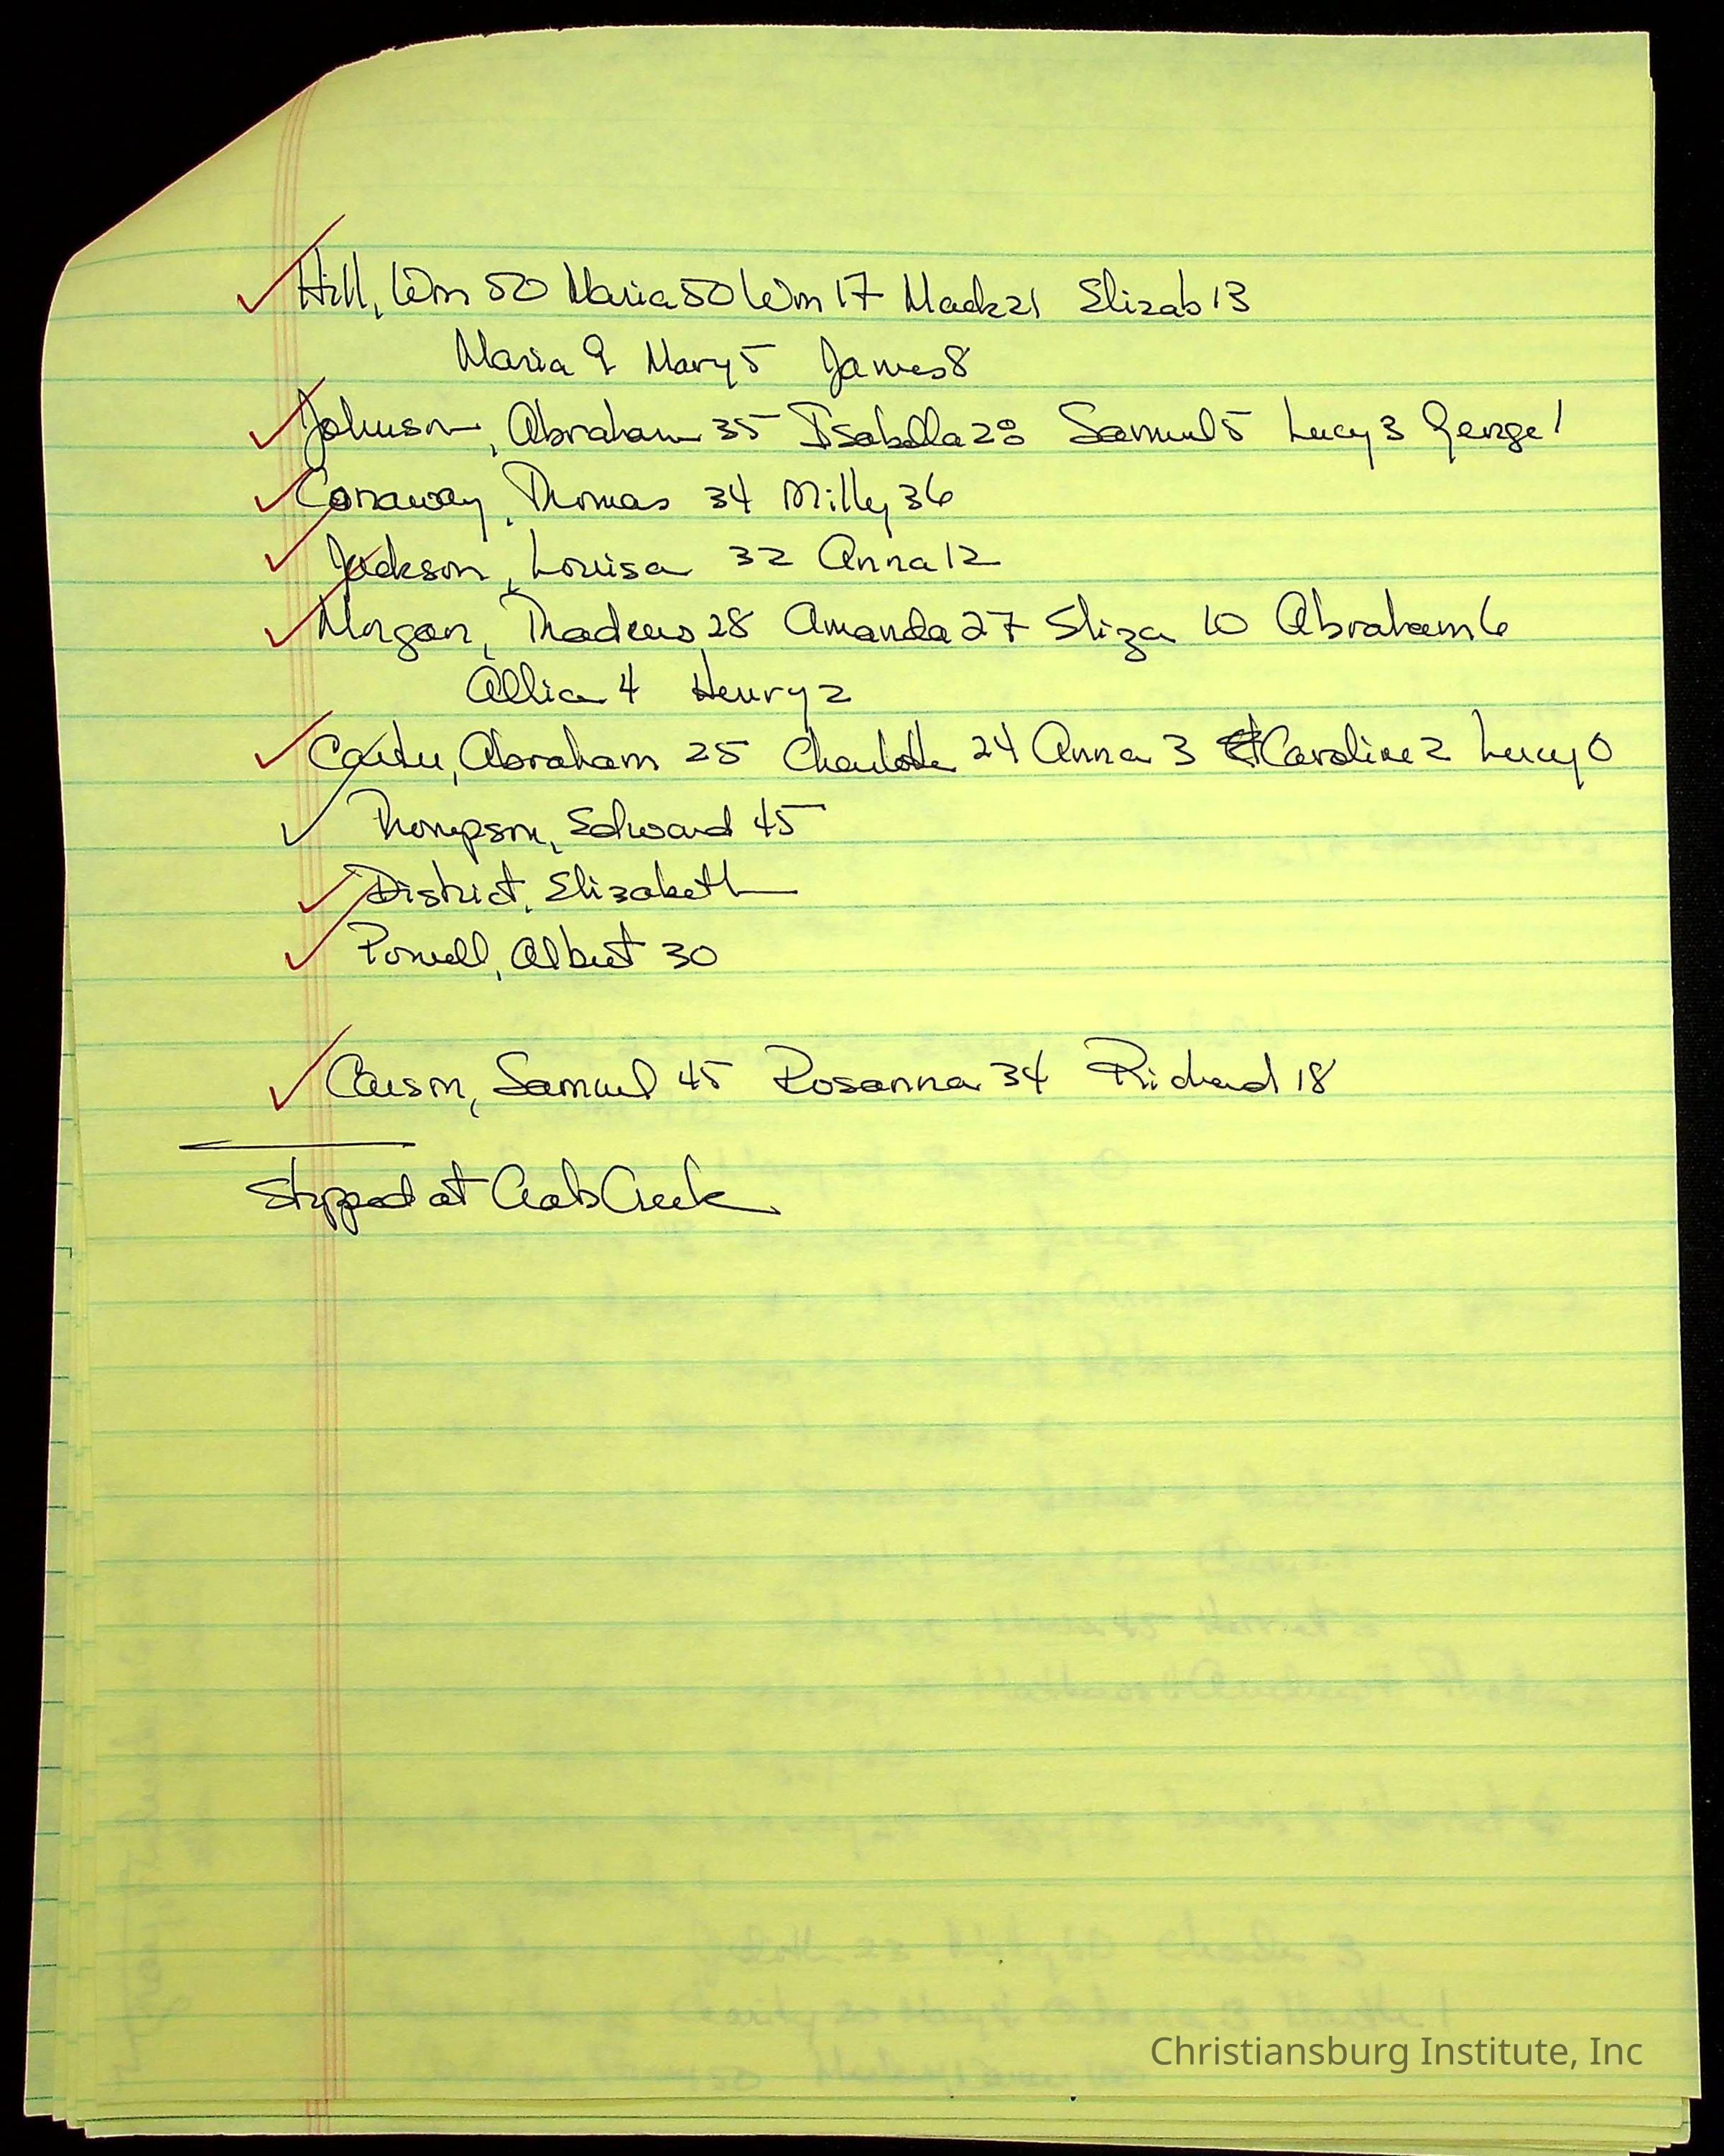 Hill, Wm 50 Maria 50 Wm 17 Mack 21 Elizab 13
Maria 9 Mary 5 James 8
Johnson, Abraham 35 Isabella 28 Samuel 5 Lucy 3 George 1
Conaway, Thomas 34 Milly 36
Jackson, Louisa 32 Anna 12
Morgan, Thadeus 28 Amanda 27 Eliza 10 Abraham 6
Allia 4 Henry 2
Carter, Abraham 25 Charlotte 24 Anna 3 Caroline 2 Lucy 0
Thompson, Edward 45
District, Elizabeth
Powell, Albert 30
Carson, Samuel 45 Rosanna 34 Richard 18
Stopped at Crab Creek
Christiansburg Institute, Inc